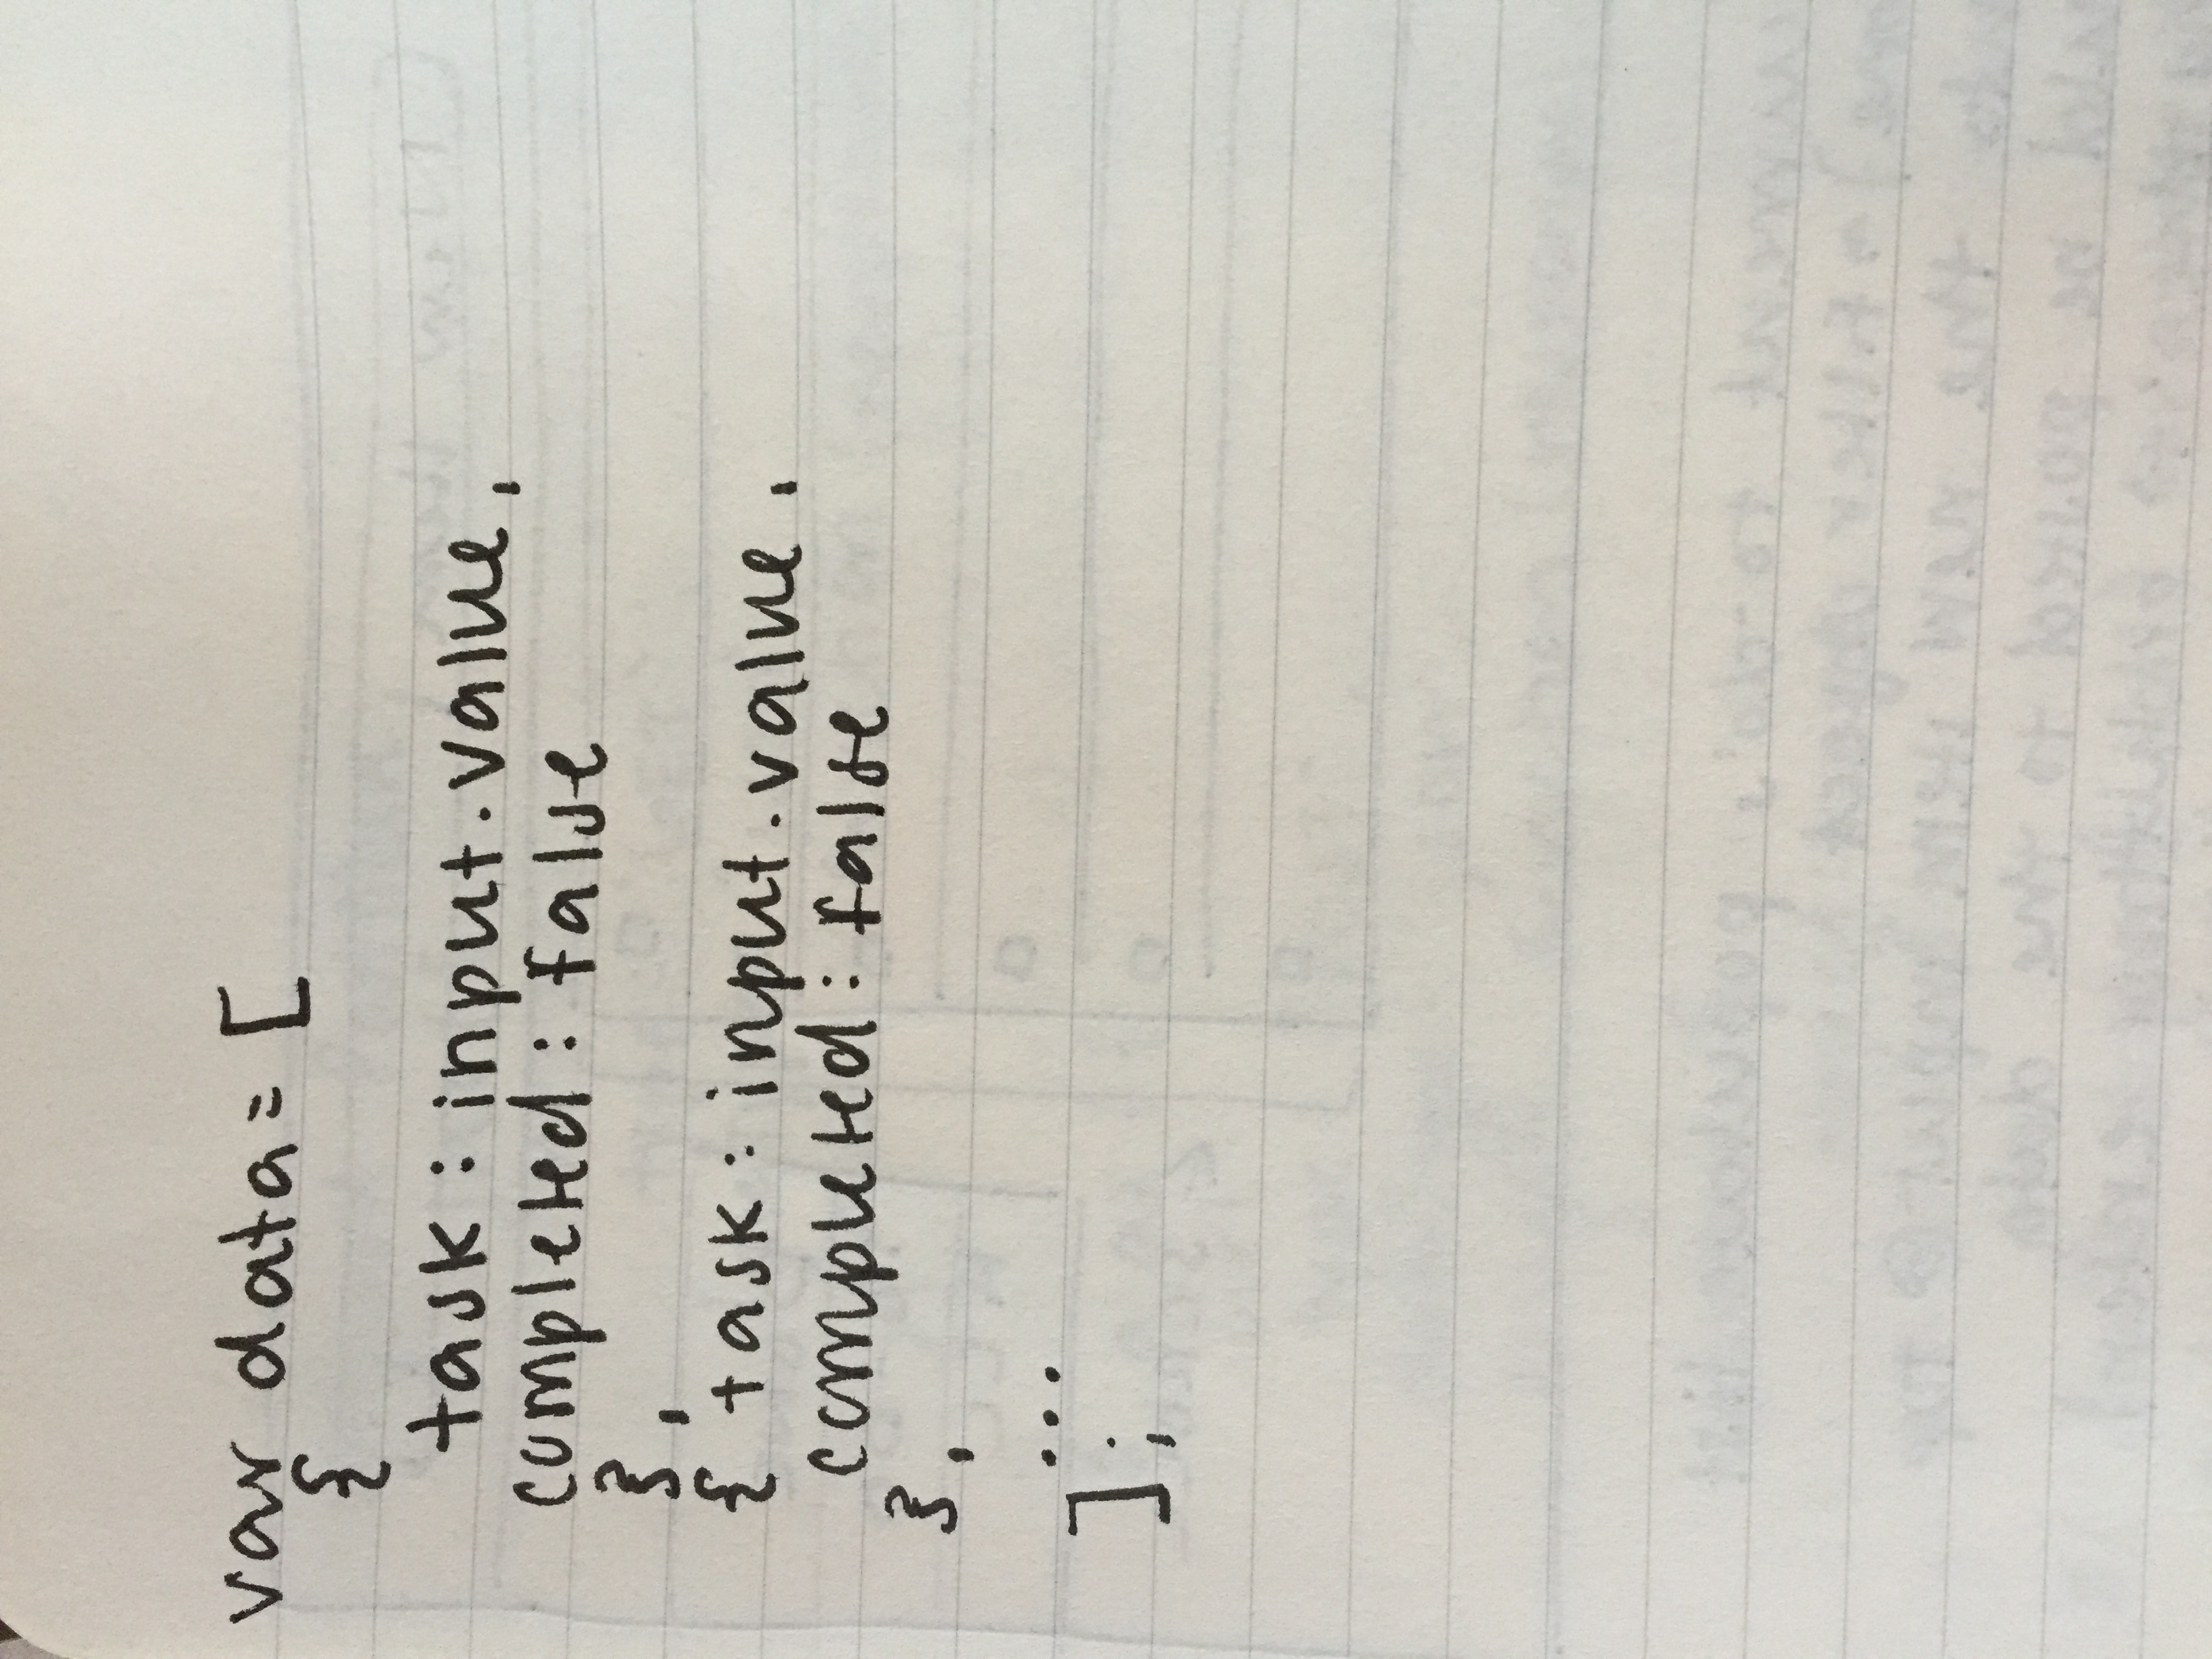 var data = [
{
task : input.value,
completed : false
},
{ task : input.value,
completed : false
},
...
];